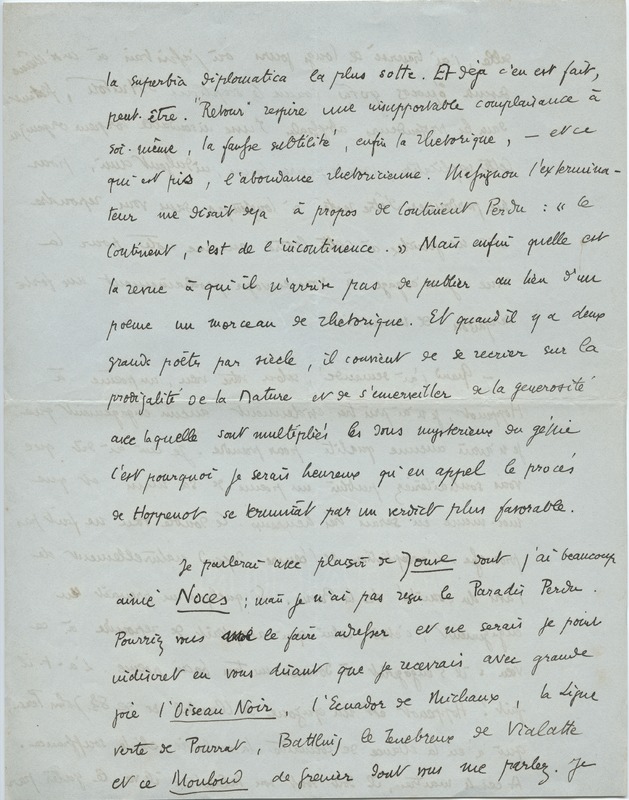 la superbia diplomatica la plus sotte. Et déjà c'en est fait,
peut-être. "Retour" respire une insupportable complaisance à
soi-même, la fausse subtilité, enfin la rhetorique, — et ce
qui est pis, l'abondance rhetoricienne. Massignon l'extermina-
teur me disait deja à propos de Continent Perdu : « le
Continent, c'est de l'incontinence. » Mais enfin quelle est
la revue à qui il n'arrive pas de publier au lieu d'un
poeme un morceau de rhetorique. Et quand il y a deux
grands poètes par siècle, il convient de se recrier sur la
prodigalité de la Nature et de s'emerveiller de la generosité
avec laquelle sont multipliés les dons mysterieux du génie
C'est pourquoi je serais heureux qu'en appel le procès
de Hoppenot se terminât par un verdict plus favorable.
Je parlerai avec plaisir de Jouve dont j'ai beaucoup
aimé Noces ; mais je n'ai pas reçu le Paradis Perdu.
Pourriez vous le faire adresser et ne serais je point
indiscret en vous disant que je recevrais avec grande
joie l'Oiseau Noir l'Ecuador de Michaux, la Ligne
verte de Pourrat, Battling le tenebreux de Vialatte
et ce Mouloud de Grenier dont vous me parlez. Je